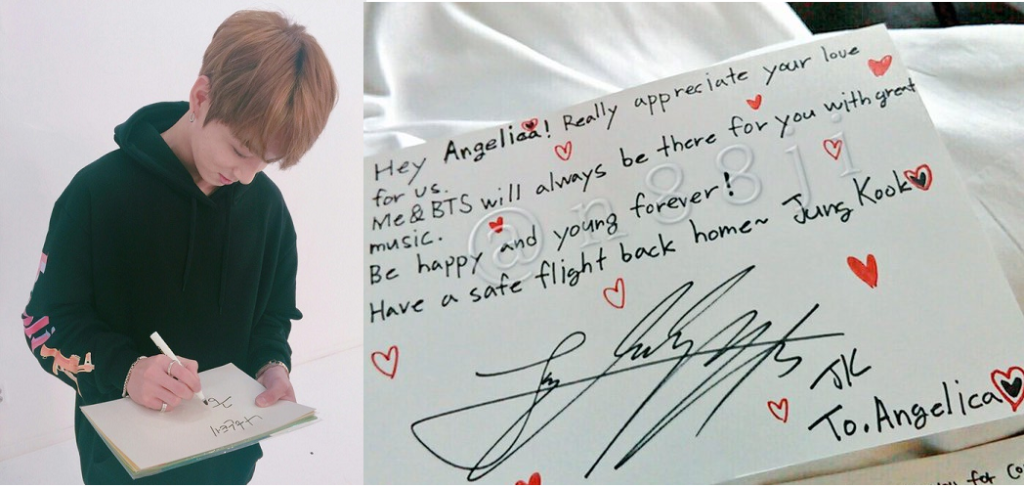 Hey Angelica! Really appreciate your love
for us.
Me & BTS will always be there for you with great
music.
Be happy and young forever!
Have a safe flight back home~ Jung Kook
JK
To. Angelica
@ng88ji
for Co